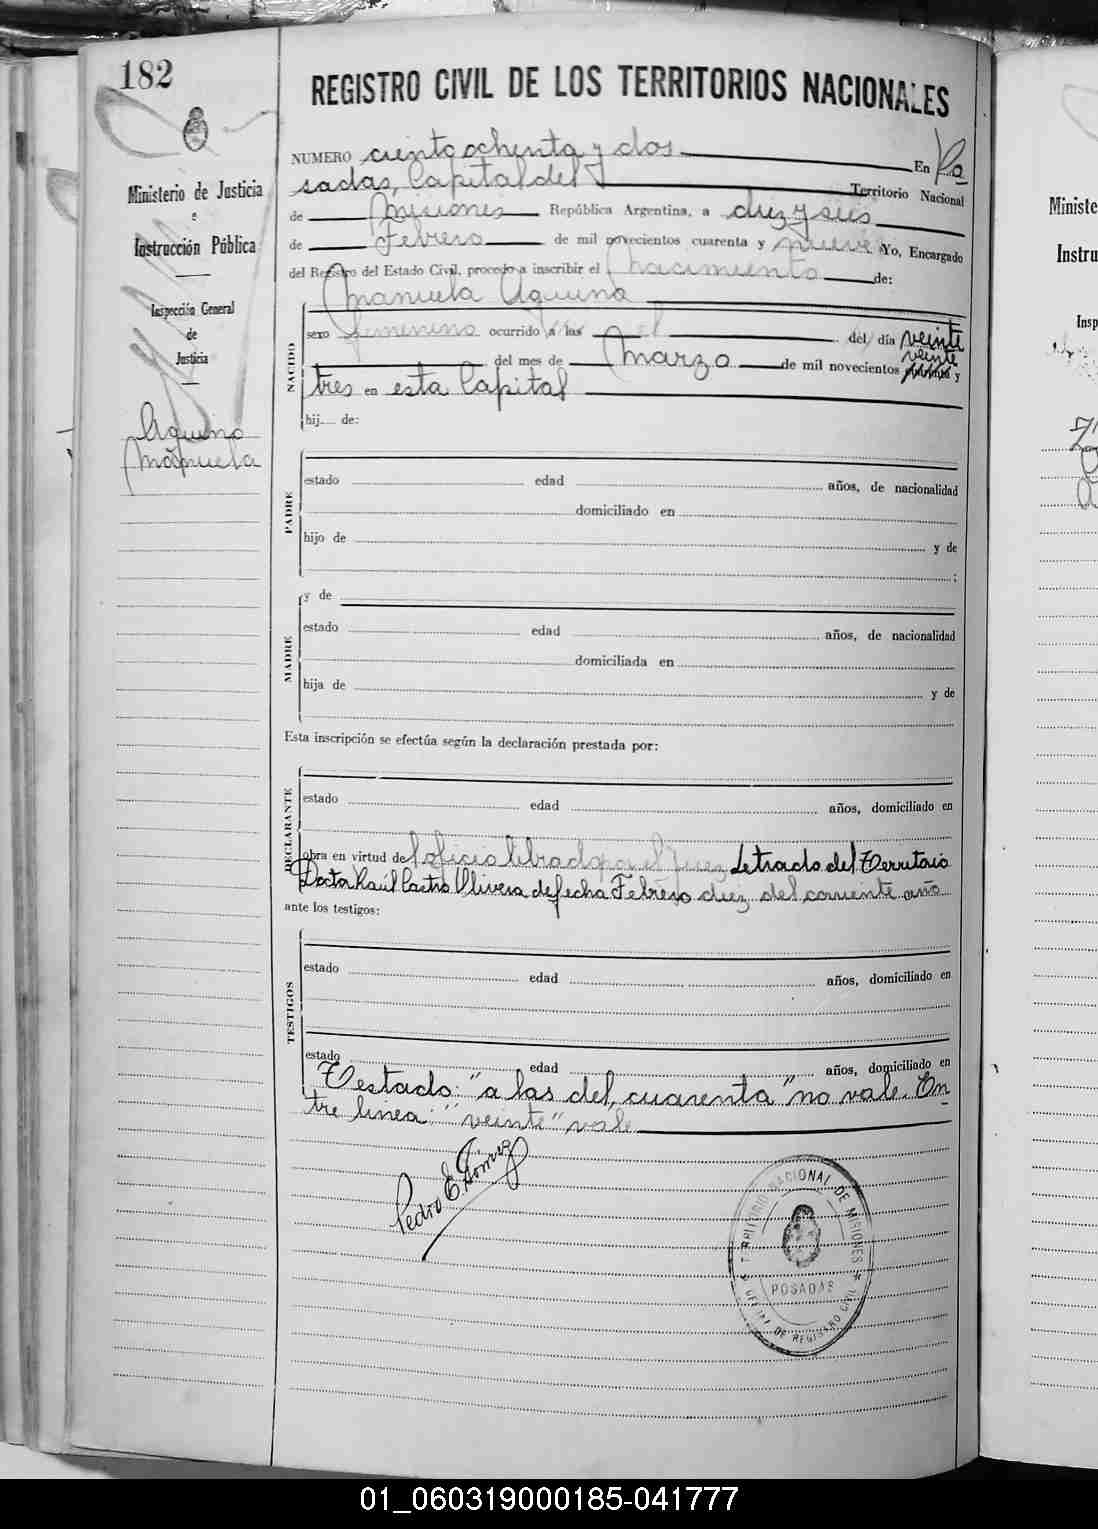 182
REGISTRO CIVIL DE LOS TERRITORIOS NACIONALES
Ministerio de Justicia
e
Instrucción Pública
Inspección General
de
Justicia
Aquino
Manuela
NUMERO ciento ochenta y dos En Po
sadas, Capital del Territorio Nacional
de Misiones República Argentina, a diez y seis
de Febrero de mil novecientos cuarenta y nueve Yo, Encargado
del Registro del Estado Civil, procedo a inscribir el Nacimiento de:
Manuela Aquino
NACIDO
sexo femenino ocurrido a las el del día veinte
veinte
del mes de Marzo de mil novecientos cuarenta y
tres en esta Capital
hij de:
PADRE
estado edad años, de nacionalidad
domiciliado en
hijo de y de
;
MADRE
y de
estado edad años, de nacionalidad
domiciliada en
hija de y de
Esta inscripción se efectúa según la declaración prestada por:
DECLARANTE
estado edad años, domiciliado en
obra en virtud de oficio librado por el Juez Letrado del Territorio
Doctor Raúl Castro Olivera de fecha Febrero diez del corriente año
ante los testigos:
TESTIGOS
estado edad años, domiciliado en
estado edad años, domiciliado en
Testado: "a las del, cuarenta" no vale. En
tre linea: "veinte" vale
Pedro E. Gómez
TERRITORIO NACIONAL DE MISIONES
POSADAS
DE REGISTRO CIVIL
Ministe
Instru
Insp
01_060319000185-041777